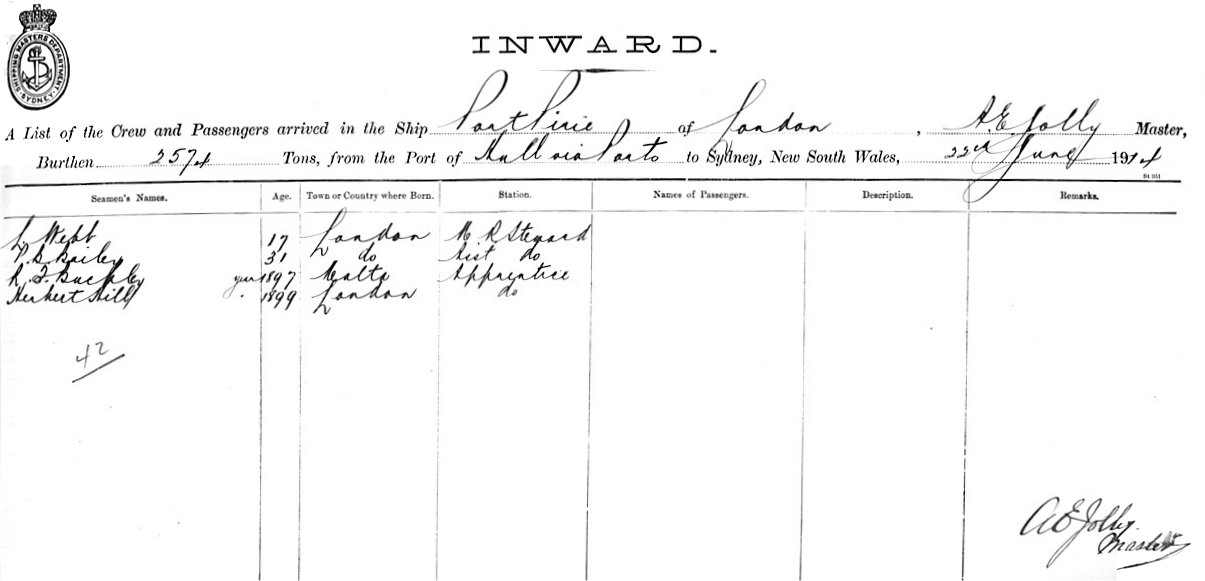 SHIPPING MASTERS DEPARTMENT
SYDNEY
INWARD.
A List of the Crew and Passengers arrived in the Ship Port Pirie of London, A. E. Jolly Master,
Burthen 2574 Tons, from the Port of Hull via Ports to Sydney, New South Wales, 22nd June 1914
St 931
Seamen's Names. Age. Town or Country where Born. Station. Names of Passengers. Description. Remarks.
L Webb 17 London M. R. Steward
Bailey 31 do Asst do
R. F. Buckley year 1897 Malta Apprentice
Herbert Hill " 1899 London do
42
A E Jolly.
Master